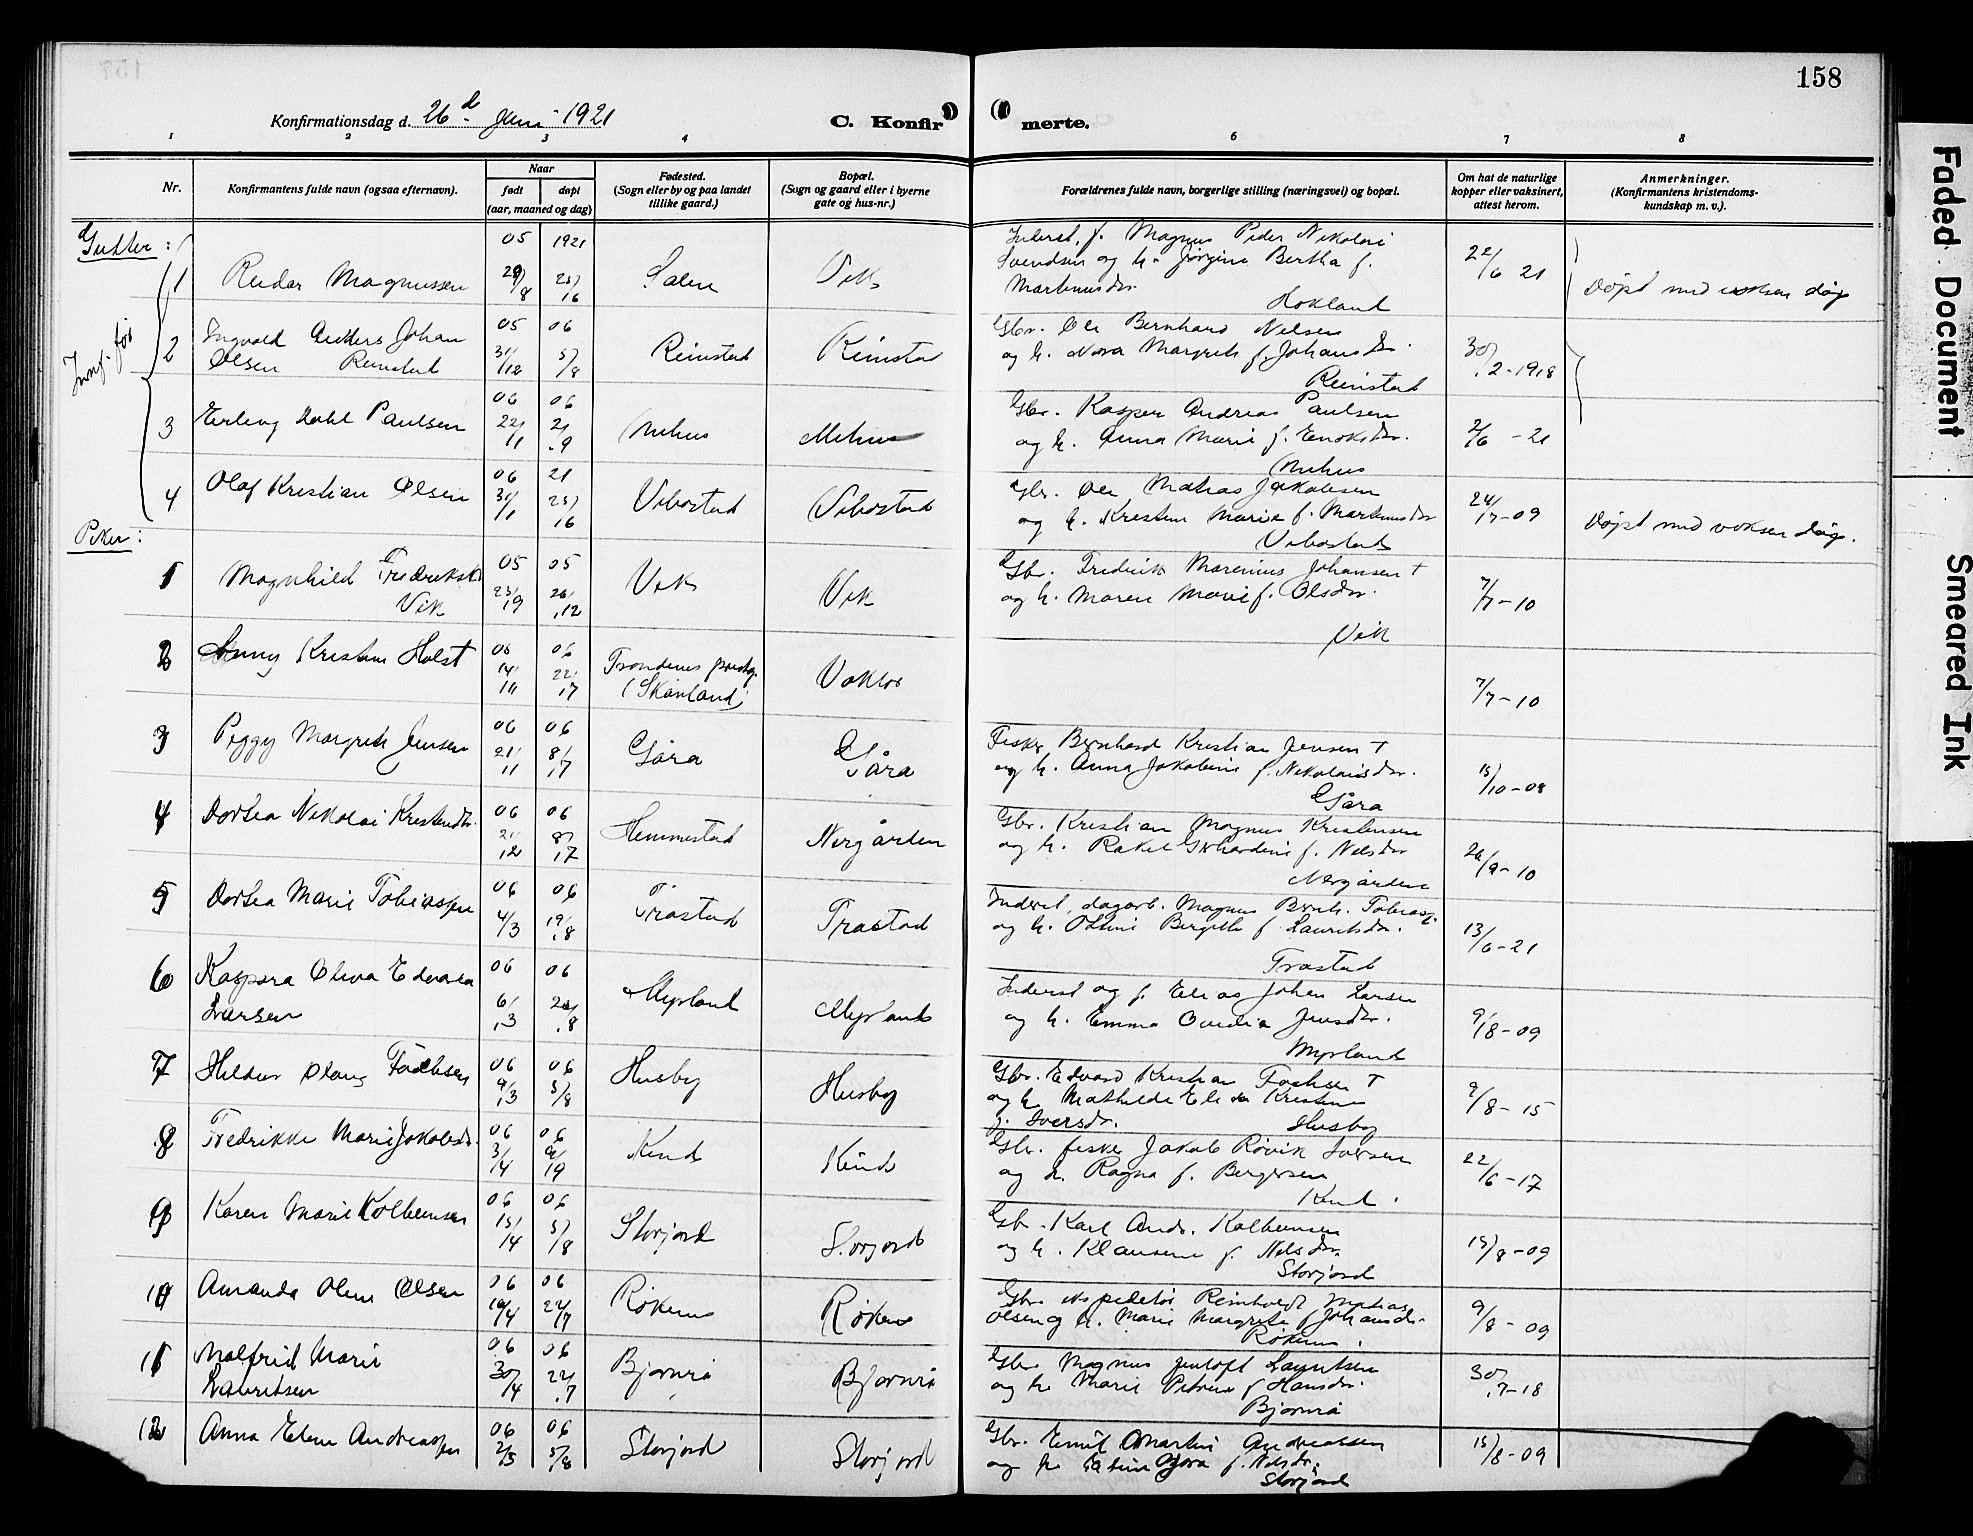 158
Konfirmationsdag d. 26d. Juni 1921
C. Konfirmerte.
1 2 3 4 6 7 8
Nr.
Konfirmantens fulde navn (ogsaa efternavn).
Naar
født
døpt
(aar, maaned og dag)
Fødested.
(Sogn eller by og paa landet
tillike gaard.)
Bopæl.
(Sogn og gaard eller i byerne
gate og hus-nr.)
Forældrenes fulde navn, borgerlige stilling (næringsvei) og bopæl.
Om hat de naturlige
kopper eller vaksinert,
attest herom.
Anmerkninger.
(Konfirmantens kristendoms-
kundskap m. v.).
Gutter:
1 Reidar Magnussen 05 29/8 1921 25/6 Salen Vik
Inderst, f. Magnus Peder Nikolai
Svendsen og h. Jørgine Bertha f.
Martinusdr.
Hokland
22/6 21
Døpt med voksen dåp
2 Ingvald Anders Johan
Olsen Reinstad
05 31/12 06 5/8 Reinstad Reinstad
Gbr. Ole Bernhard Nilsen
og h. Nora Margrete f. Johansdr.
Reinstad
30/2-1918
3 Erling Dahl Paulsen 06 22/1 06 2/9 Melhus Melhus
Gbr. Kasper Andreas Paulsen
og h. Anna Marie f. Enoksdr.
Melhus
2/6 - 21
4 Olaf Kristian Olsen 06 31/1 21 25/6 Vebostad Vebostad
Gbr. Ole Matias Jakobsen
og h. Kristine Marie f. Martinusdr
Vebostad
24/7-09
Døpt med voksen dåp.
Piker:
1 Magnhild Fredriks
Vik
05 23/9 05 26/12 Vik Vik
Gbr. Fredrik Marenius Johansen †
og h. Maren Marie f. Olsdr.
Vik
7/7-10
2 Anny Kristine Holst 06 14/11 06 22/7 Trondenes prestegj.
(Skånland)
7/7-10
3 Peggy Margrete Jensen 06 21/1 06 8/7 Gåra Gåra
Fisker Bernhard Kristian Jensen †
og h. Anna Jakobine f. Nikolaisdr.
Gåra
15/10-08
4 Dorthea Nikolai Kristensdr. 06 2/12 06 8/7 Hemmestad Nergården
Gbr. Kristian Magnus Kristensen
og h. Rakel Gerhardine f. Nilsdr
Nergården
26/9-10
5 Dorthea Marie Tobiassen 06 4/3 06 19/8 Trastad Trastad
Inderst, dagarb. Magnus Bernh. Tobiass.
og h. Ottine Bergitte f. Lauritsdr.
Trastad
13/6-21
6 Kaspara Oliva Edvarda
Larsen
06 6/3 06 26/8 Myrland Myrland
Inderst og f. Elias Johan Larsen
og h. Emma Ovedia Jensdr.
Myrland
9/8-09
7 Hildur Olaug Fochsen 06 9/3 06 5/8 Husby Husby
Gbr. Edvard Kristian Fochsen †
og h. Mathilde Elida Kristine
f. Iversdr. Husby
9/8-15
8 Fredrikke Marie Jakobsdr. 06 3/4 06 9/9 Kind Kind
Gbr. fisker Jakob Røvik Iversen
og h. Ragna f. Bergersen
Kind
22/6-17
9 Karen Marie Kolbeinsen 06 15/4 06 5/8 Storjord Storjord
Gbr. Karl Andr. Kolbeinsen
og h. Klausine f. Nilsdr.
Storjord
15/8-09
10 Amanda Oline Olsen 06 19/4 06 22/7 Røkenes Røkenes
Gbr. ekspeditør Reinholdt Matias
Olsen og h. Marie Margrete f. Johansdr.
Røkenes
9/8 - 09
11 Malfrid Marie
Lauritsen
06 30/4 06 22/7 Bjørnrå Bjørnrå
Gbr. Magnus Jentoft Lauritsen
og h. Marie Petrine f. Hansdr.
Bjørnrå
30/7-18
12 Anna Eline Andreassen 06 2/5 06 5/8 Storjord Storjord
Gbr. Emil Martin Andreassen
f. Nilsdr.
Storjord
15/8-09
Faded Document
Smeared Ink